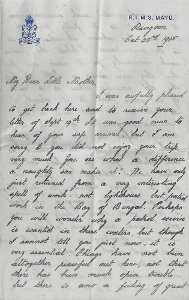 R.I.M.S. MAYO.
Rangoon
Oct 20th 1915
My Dear Little Mother,
I was awfully pleased
to get back here and to receive your
letter of Sept 19th. It was good news to
hear of your safe arrival, but I am
sorry you did not enjoy your trip
very much. You see what a difference
a naughty son makes it! We have only
just returned from a very interesting
spell of work - not lighthouse but patrol
work in the Bay of Bengal. Perhaps
you will wonder why a patrol service
is wanted in these waters but though
I cannot tell you just now, it is
very essential. Things have not been
altogether peaceful out here, not that
there has been much open trouble
but there is a feeling of great